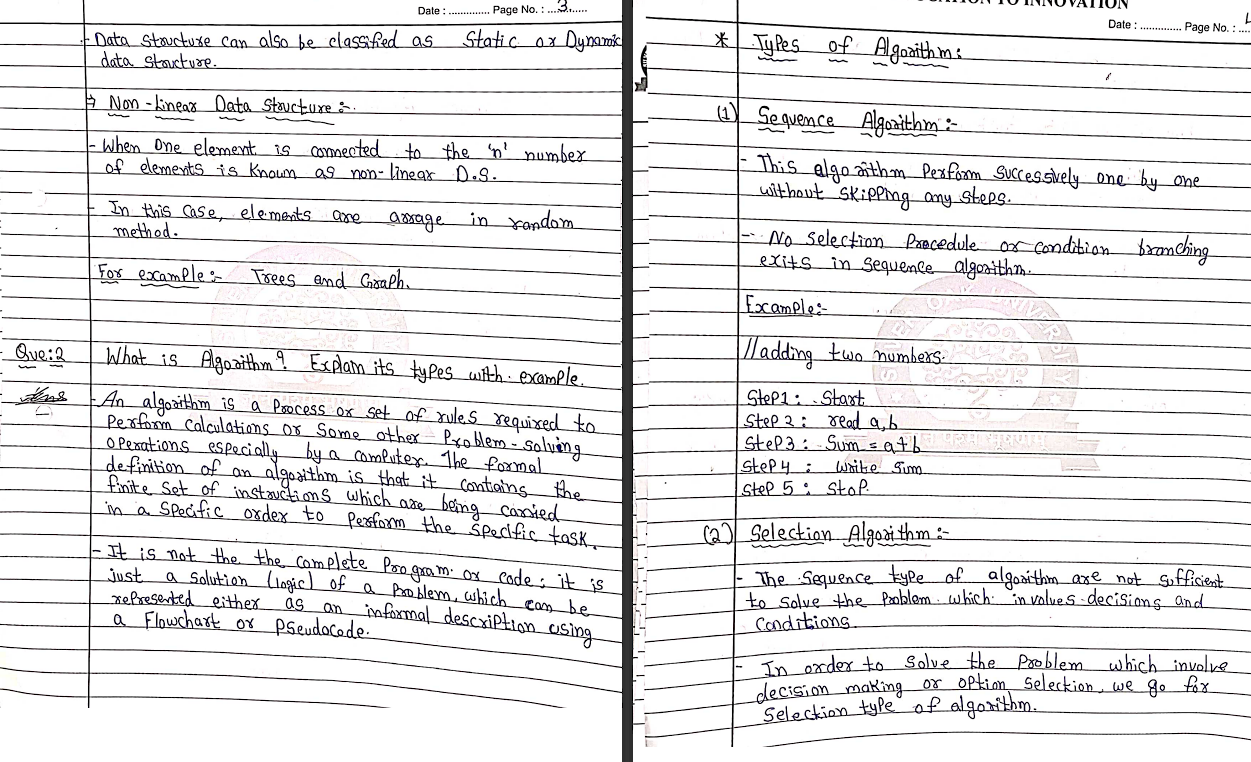 Date : .............. Page No. : ...3......
- Data Structure can also be classified as Static or Dynamic
data structure.
→ Non-Linear Data Structure :-
- When one element is connected to the 'n' number
of elements is known as non-linear D.S.
- In this case, elements are arrage in random
method.
For example :- Trees and Graph.
Que:2 What is Algorithm? Explain its types with example.
Ans - An algorithm is a process or set of rules required to
perform calculations or some other problem-solving
operations especially by a computer. The formal
definition of an algorithm is that it contains the
finite set of instructions which are being carried
in a specific order to perform the specific task.
- It is not the the complete program or code; it is
just a solution (logic) of a problem, which can be
represented either as an informal description using
a Flowchart or Pseudocode.
TO INNOVATION
Date : .............. Page No. : ....
* Types of Algorithm :
(1) Sequence Algorithm :-
- This algorithm perform successively one by one
without skipping any steps.
- No selection procedure or condition branching
exits in sequence algorithm.
Example :-
// adding two numbers.
Step 1 : Start
Step 2 : read a, b
Step 3 : Sum = a + b
Step 4 : write Sum
Step 5 : Stop.
(2) Selection Algorithm :-
- The Sequence type of algorithm are not sufficient
to solve the problem which involves decisions and
conditions.
- In order to solve the problem which involve
decision making or option selection, we go for
Selection type of algorithm.